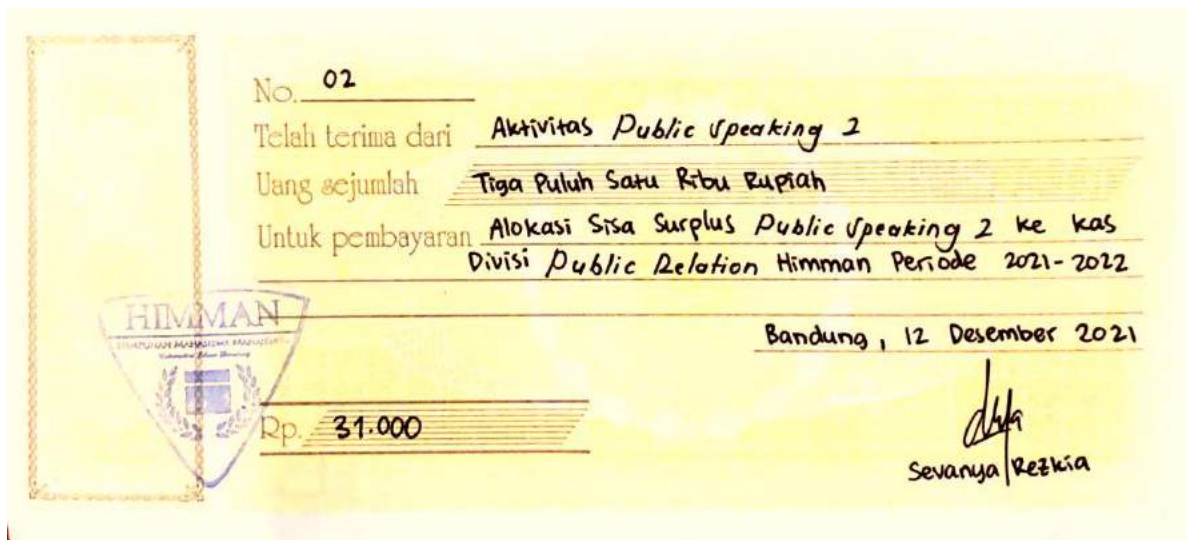 No. 02
Telah terima dari Aktivitas Public Speaking 2
Uang sejumlah Tiga Puluh Satu Ribu Rupiah
Untuk pembayaran Alokasi Sisa Surplus Public Speaking 2 ke kas
Divisi Public Relation Himman Periode 2021-2022
HIMMAN
HIMPUNAN MAHASISWA MANAJEMEN
Bandung, 12 Desember 2021
Rp. 31.000
Sevanya Rezkia